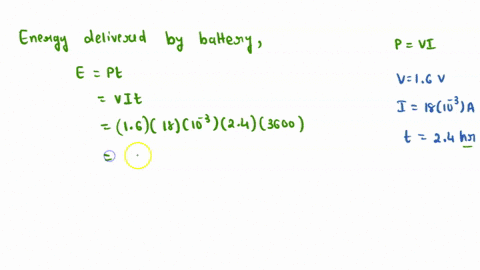 Energy delivered by battery,
E = Pt
= VIt
= (1.6)(18)(10⁻³)(2.4)(3600)
=
P = VI
V = 1.6 V
I = 18(10⁻³)A
t = 2.4 hr